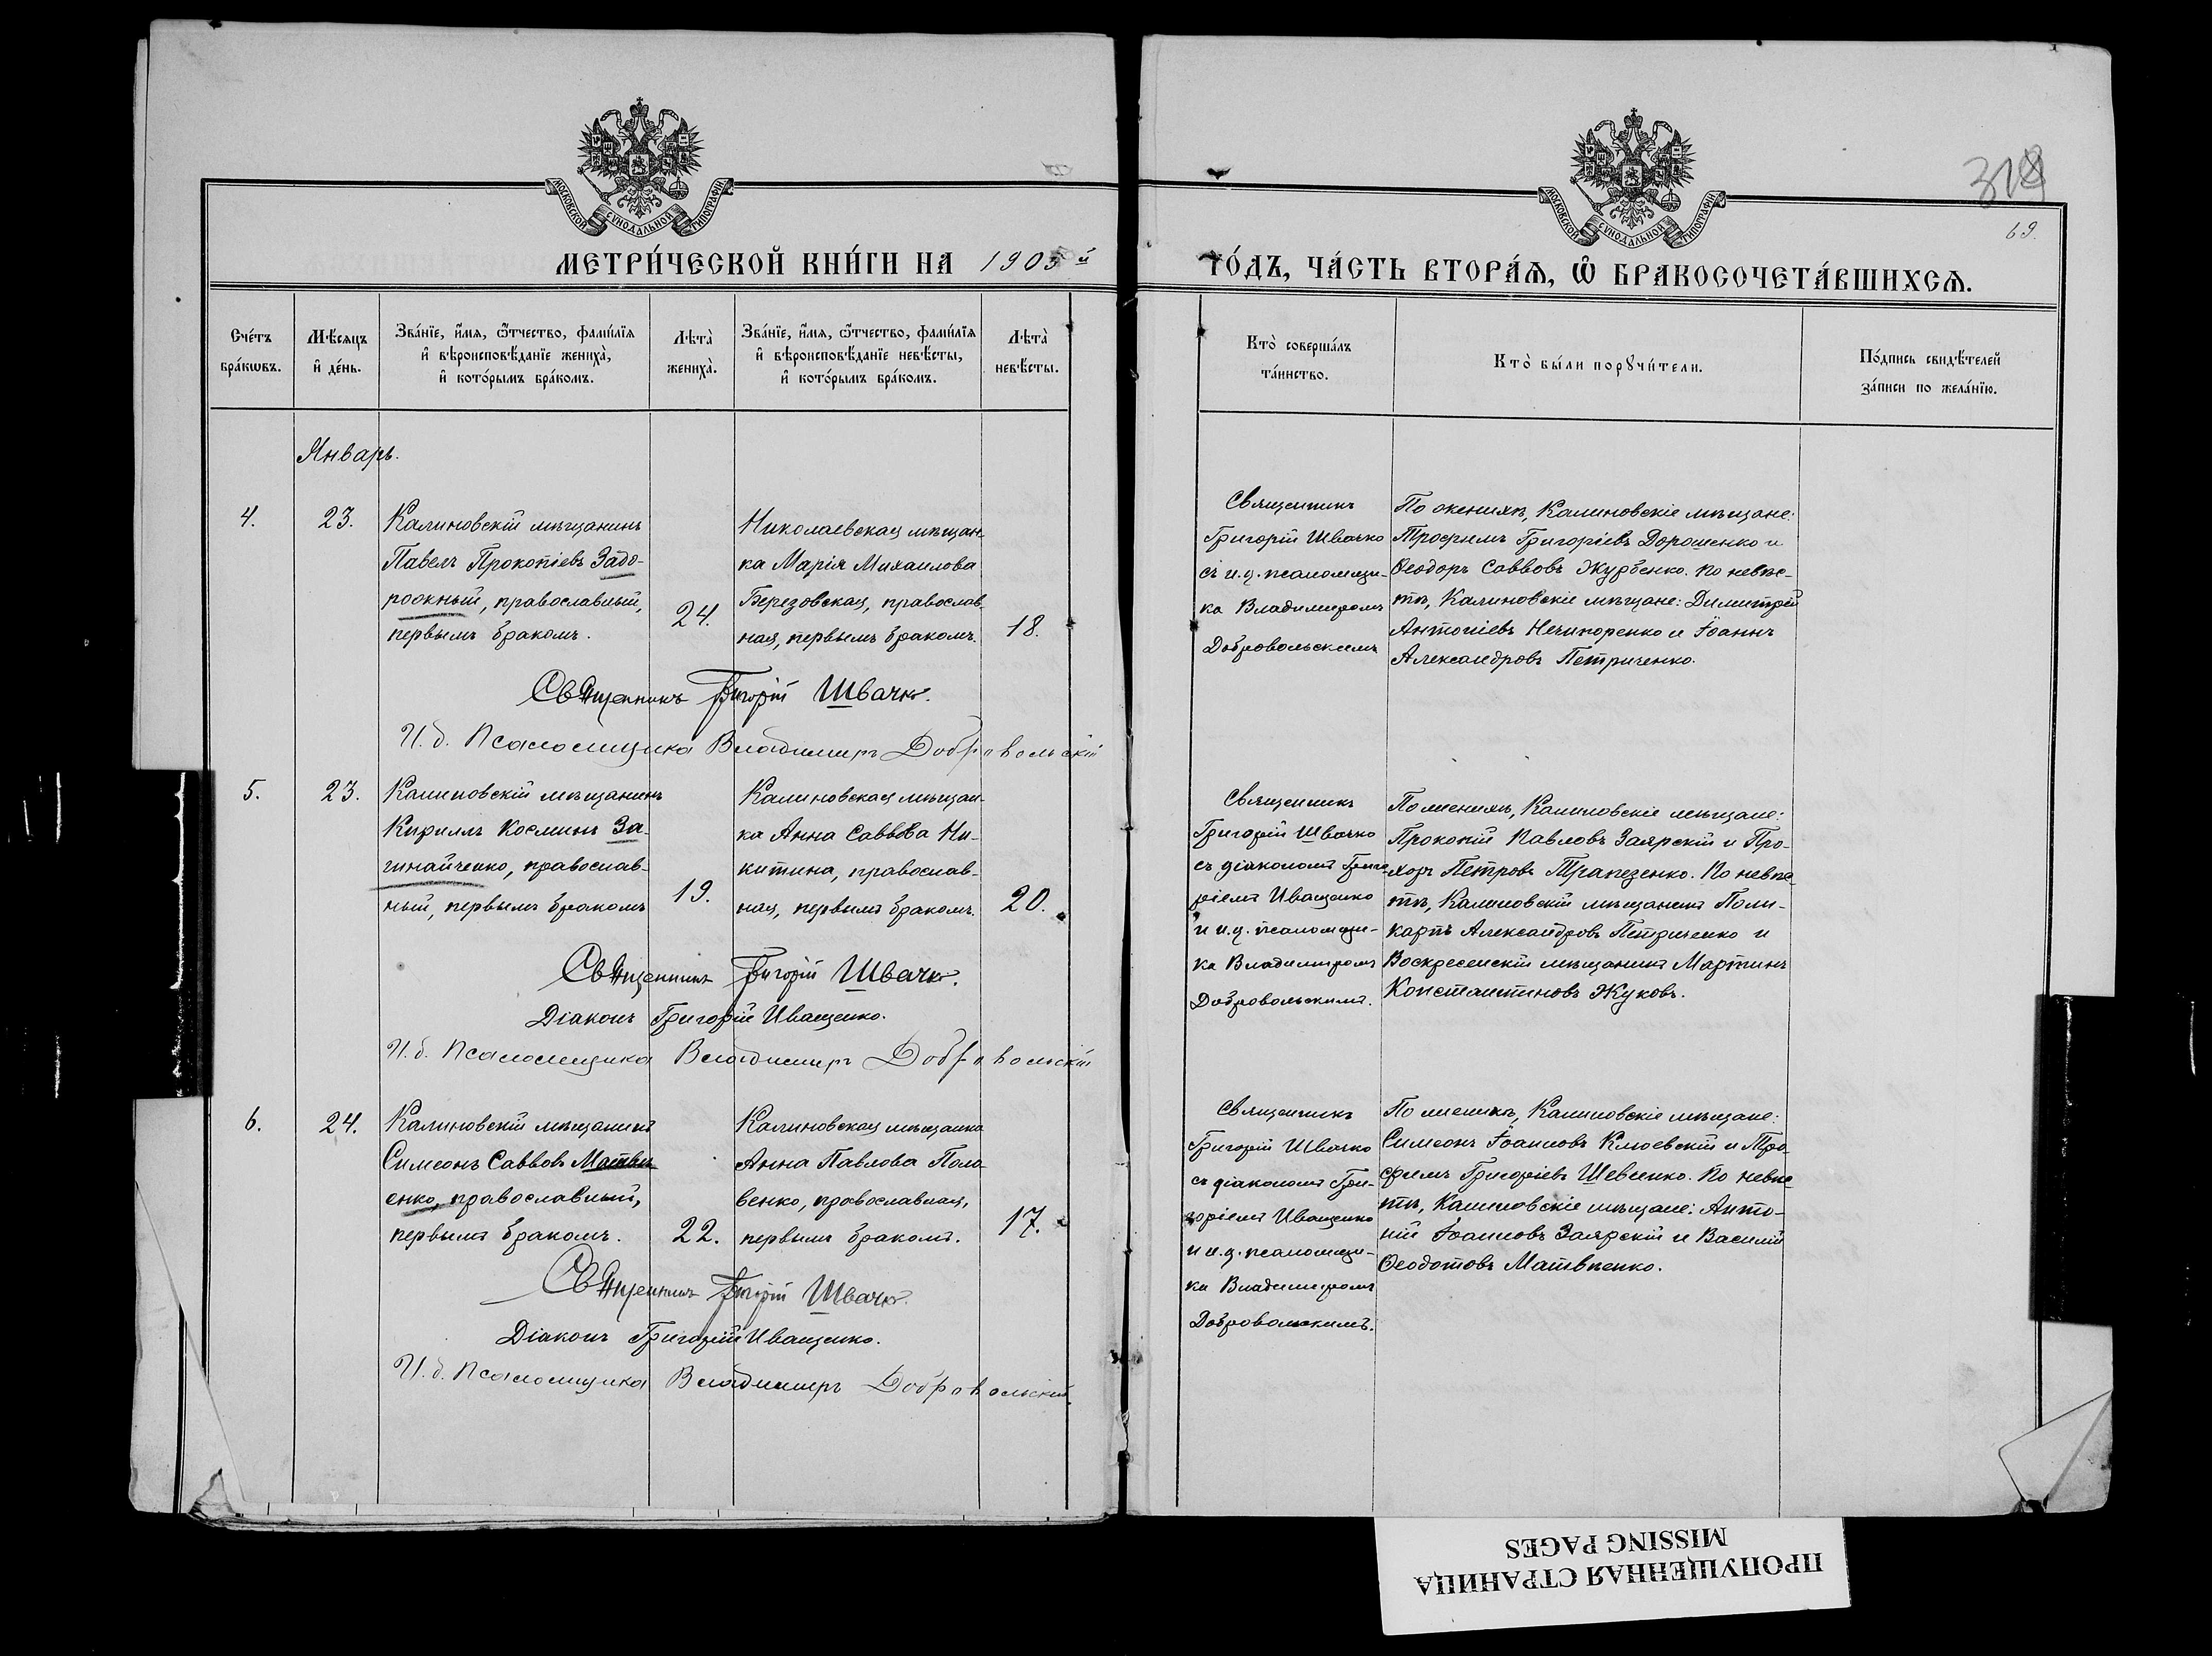 319
69.
МОСКОВСКОЙ СѴНОДАЛЬНОЙ ТИПОГРАФІИ
МОСКОВСКОЙ СѴНОДАЛЬНОЙ ТИПОГРАФІИ
МЕТРИ́ЧЕСКОЙ КНИ́ГИ НА 1905й
ГО́ДЪ, ЧА́СТЬ ВТОРА́Я, Ѡ БРАКОСОЧЕТА́ВШИХСЯ.
Сче́тъ
бра́кѡвъ.
Мѣ́сяцъ
и҆ де́нь.
Зва́нїе, и҆́мя, ѻ҆́тчество, фами́лїя
и҆ вѣроисповѣ́данїе жениха̀,
и҆ кото́рымъ бра́комъ.
Лѣта̀
жениха̀.
Зва́нїе, и҆́мя, ѻ҆́тчество, фами́лїя
и҆ вѣроисповѣ́данїе невѣ́сты,
и҆ кото́рымъ бра́комъ.
Лѣта̀
невѣ́сты.
Кто̀ соверша́лъ
та́инство.
Кто̀ бы́ли порꙋчи́тели.
По́дпись свидѣ́телей
за́писи по жела́нїю.
Январь.
4.
23.
Калиновскій мѣщанинъ
Павелъ Прокопіевъ Задо-
рожный, православный,
первымъ бракомъ.
24.
Николаевская мѣщан-
ка Марія Михаилова
Березовская, православ-
ная, первымъ бракомъ.
18.
Священникъ
Григорій Швачко
съ и.д. псаломщи-
ка Владимиромъ
Добровольскимъ
По женихѣ, Калиновскіе мѣщане:
Трофимъ Григоріевъ Дорошенко и
Ѳеодоръ Саввовъ Журбенко. По невѣс-
тѣ, Калиновскіе мѣщане: Димитрій
Антоніевъ Нечипоренко и Іоаннъ
Александровъ Петриченко.
Священникъ Григорій Швачко.
И.д. Псаломщика Владимиръ Добровольскій
5.
23.
Калиновскій мѣщанинъ
Кириллъ Косминъ За-
чинайченко, православ-
ный, первымъ бракомъ
19.
Калиновская мѣщан-
ка Анна Саввова Ни-
китина, православ-
ная, первымъ бракомъ.
20.
Священникъ
Григорій Швачко
съ діакономъ Григо-
ріемъ Иващенко
и и.д. псаломщи-
ка Владимиромъ
Добровольскимъ.
По женихѣ, Калиновскіе мѣщане:
Прокопій Павловъ Заярскій и Про-
хоръ Петровъ Трапезенко. По невѣс-
тѣ, Калиновскій мѣщанинъ Поли-
карпъ Александровъ Петриченко и
Воскресенскій мѣщанинъ Мартинъ
Константиновъ Жуковъ.
Священникъ Григорій Швачко.
Діаконъ Григорій Иващенко.
И.д. Псаломщика Владимиръ Добровольскій
6.
24.
Калиновскій мѣщанинъ
Симеонъ Саввовъ Матвѣ-
енко, православный,
первымъ бракомъ.
22.
Калиновская мѣщанка
Анна Павлова Поло-
венко, православная,
первымъ бракомъ.
17.
Священникъ
Григорій Швачко
съ діакономъ Гри-
горіемъ Иващенко
и и.д. псаломщи-
ка Владимиромъ
Добровольскимъ.
По женихѣ, Калиновскіе мѣщане:
Симеонъ Іоанновъ Клюевскій и Тро-
фимъ Григоріевъ Шевченко. По невѣс-
тѣ, Калиновскіе мѣщане: Анто-
ній Іоанновъ Заярскій и Василій
Ѳеодотовъ Матвѣенко.
Священникъ Григорій Швачко.
Діаконъ Григорій Иващенко.
И.д. Псаломщика Владимиръ Добровольскій.
ПРОПУЩЕННАЯ СТРАНИЦА
MISSING PAGES